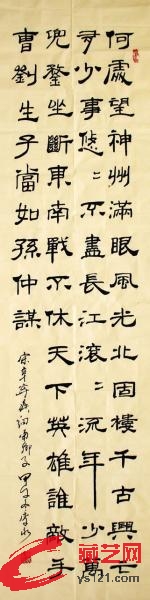 何處望神州滿眼風光北固樓千古興亡
多少事悠〻不盡長江滾〻流年少萬
兜鍪坐斷東南戰不休天下英雄誰敵手
曹劉生子當如孫仲謀
宋辛棄疾詞南鄉子
藏艺网
ys121.com